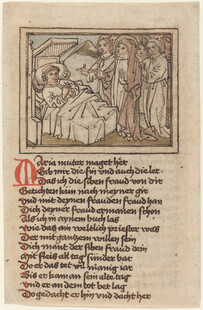 Maria muter maget her
Gib mir die sin und auch die ler
Das ich die siben fraud von dir
Getichten kun nach meyner gir
und mit deynen frauden fraud han
Dich deyner fraud ermanen schon
Als ich in eynem buch las
wie das ain weltlich priester was
Der mit gantzem willen sein
Dich mant der siben fraud dein
mit fleis all tag sunder bar
Do er das tet vil manig iar
Bis er kam an sein alte tag
und er an dem tot bet lag
Do gedacht er hin und dacht her